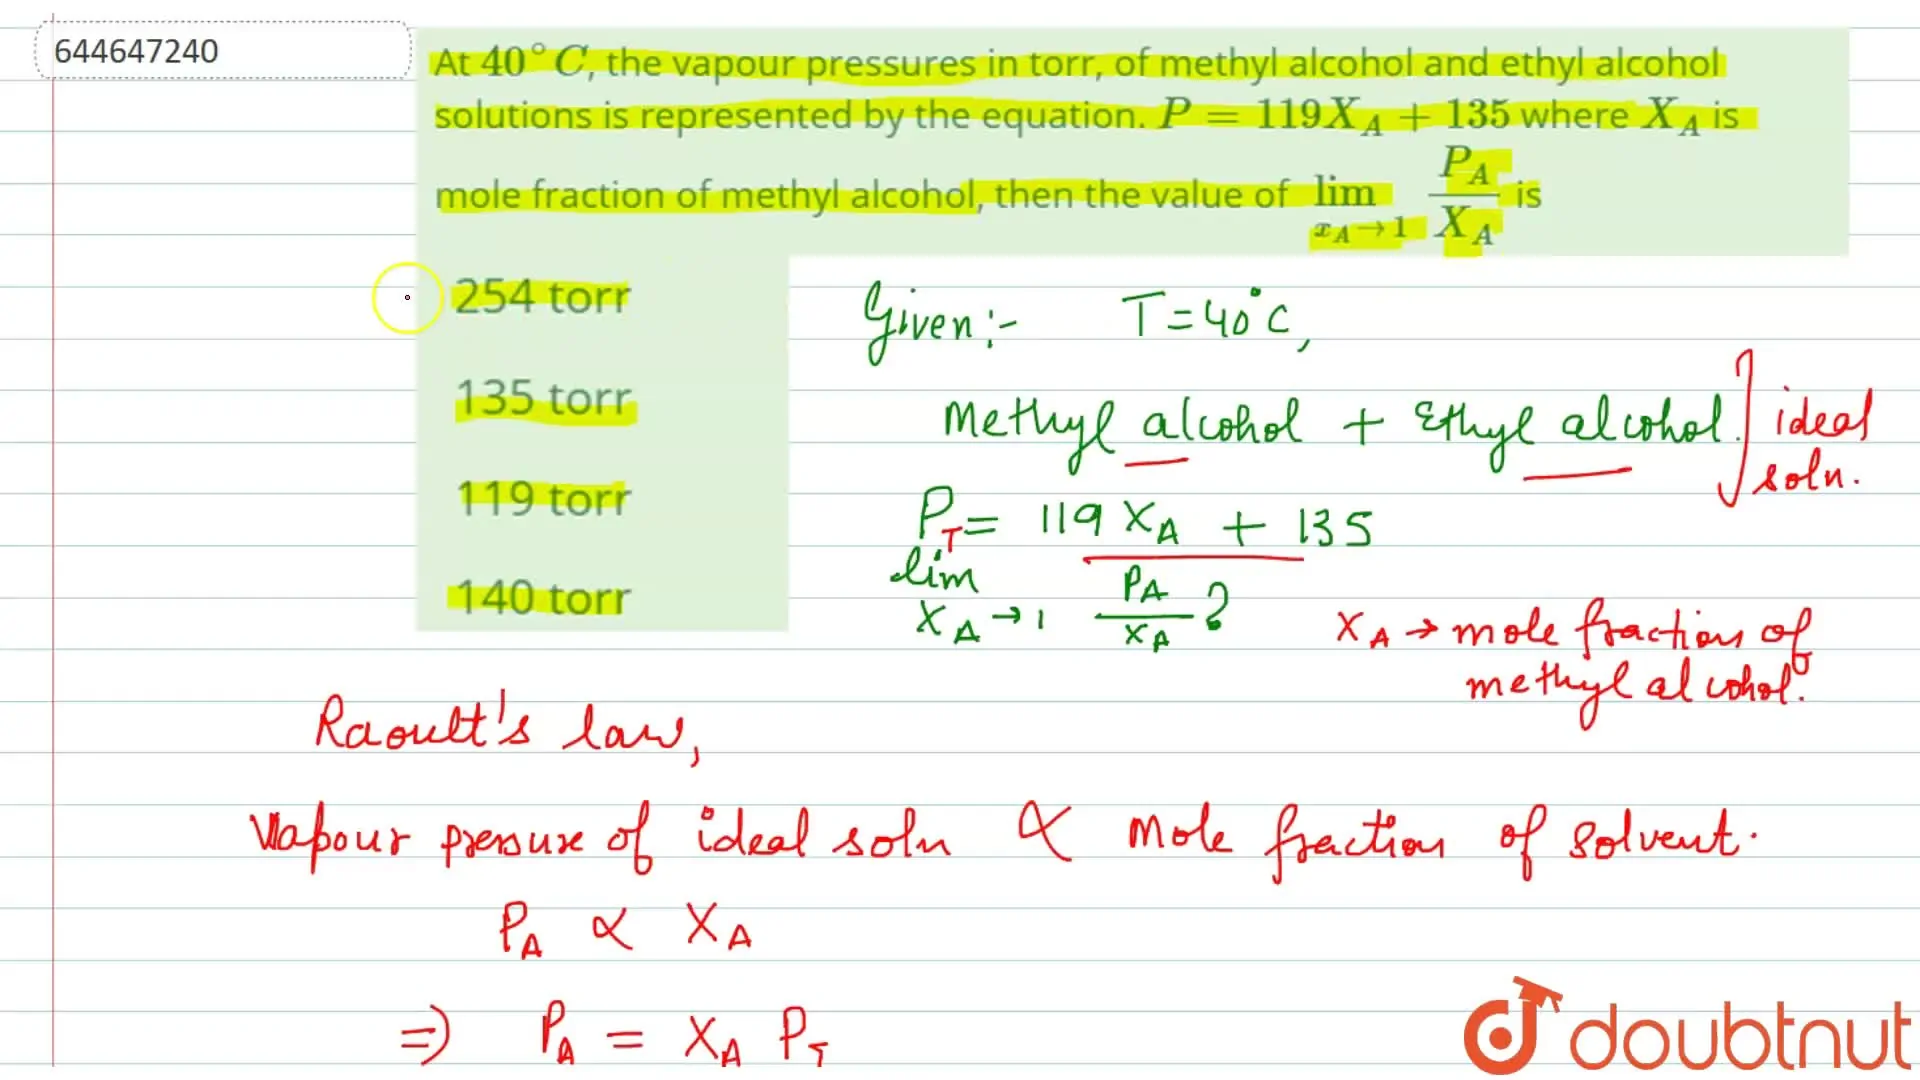 644647240
At 40° C, the vapour pressures in torr, of methyl alcohol and ethyl alcohol
solutions is represented by the equation. P = 119X_A + 135 where X_A is
mole fraction of methyl alcohol, then the value of lim_{x_A→1} P_A/X_A is
254 torr
135 torr
119 torr
140 torr
Given:- T = 40°C,
Methyl alcohol + Ethyl alcohol.] ideal soln.
P_T = 119 X_A + 135
lim_{X_A→1} P_A/X_A ?
X_A → mole fraction of
methyl alcohol.
Raoult's law,
Vapour pressure of ideal soln ∝ mole fraction of solvent.
P_A ∝ X_A
⇒ P_A = X_A P_T
doubtnut